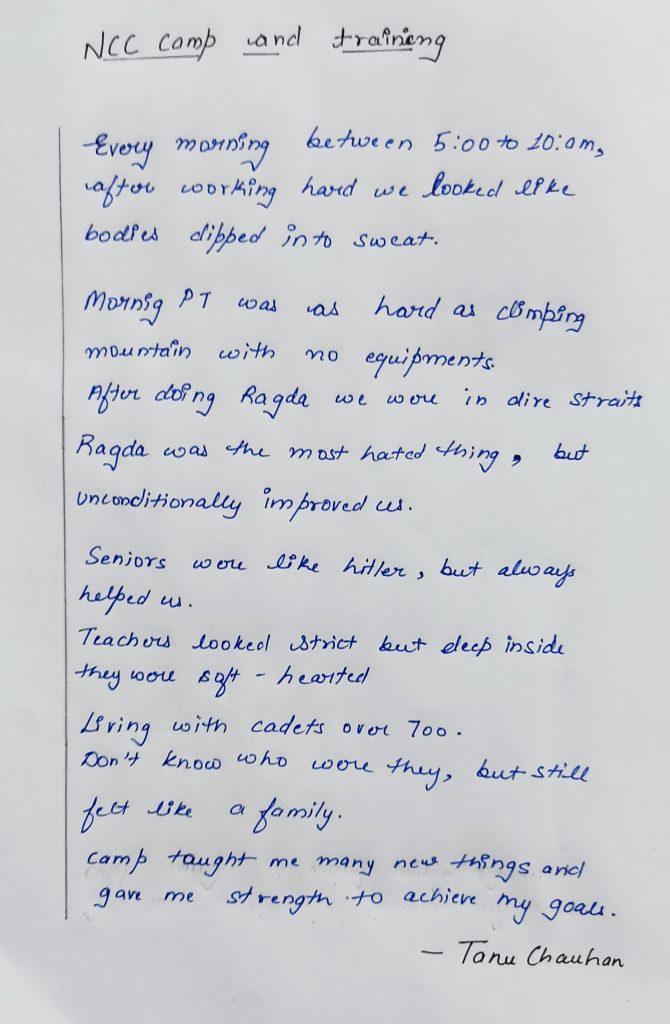 NCC Camp and training
Every morning between 5:00 to 10:am,
after working hard we looked like
bodies dipped into sweat.
Mornig PT was as hard as climping
mountain with no equipments.
After doing Ragda we were in dire straits
Ragda was the most hated thing, but
unconditionally improved us.
Seniors were like hitler, but always
helped us.
Teachers looked strict but deep inside
they were soft - hearted
Living with cadets over 700.
Don't know who were they, but still
felt like a family.
camp taught me many new things and
gave me strength to achieve my goals.
- Tanu Chauhan